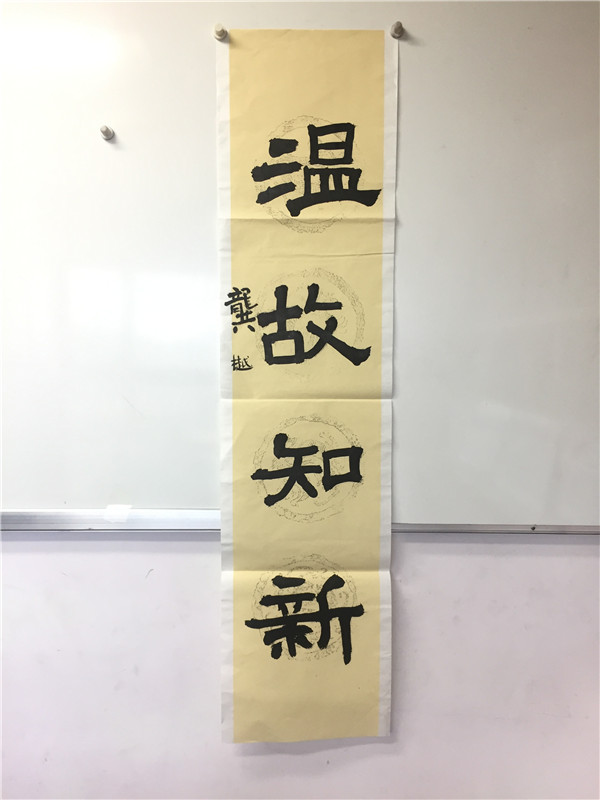 温故知新
龔越